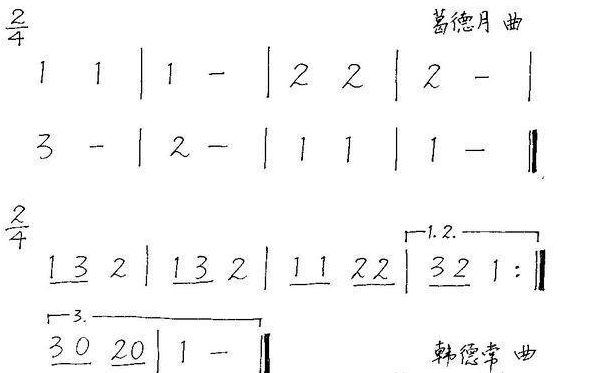 2/4
葛德月 曲
1 1 | 1 - | 2 2 | 2 - |
3 - | 2 - | 1 1 | 1 - ‖
2/4
1. 2.
1 3 2 | 1 3 2 | 1 1 2 2 | 3 2 1 :‖
3.
3 0 2 0 | 1 - ‖
韩德常 曲